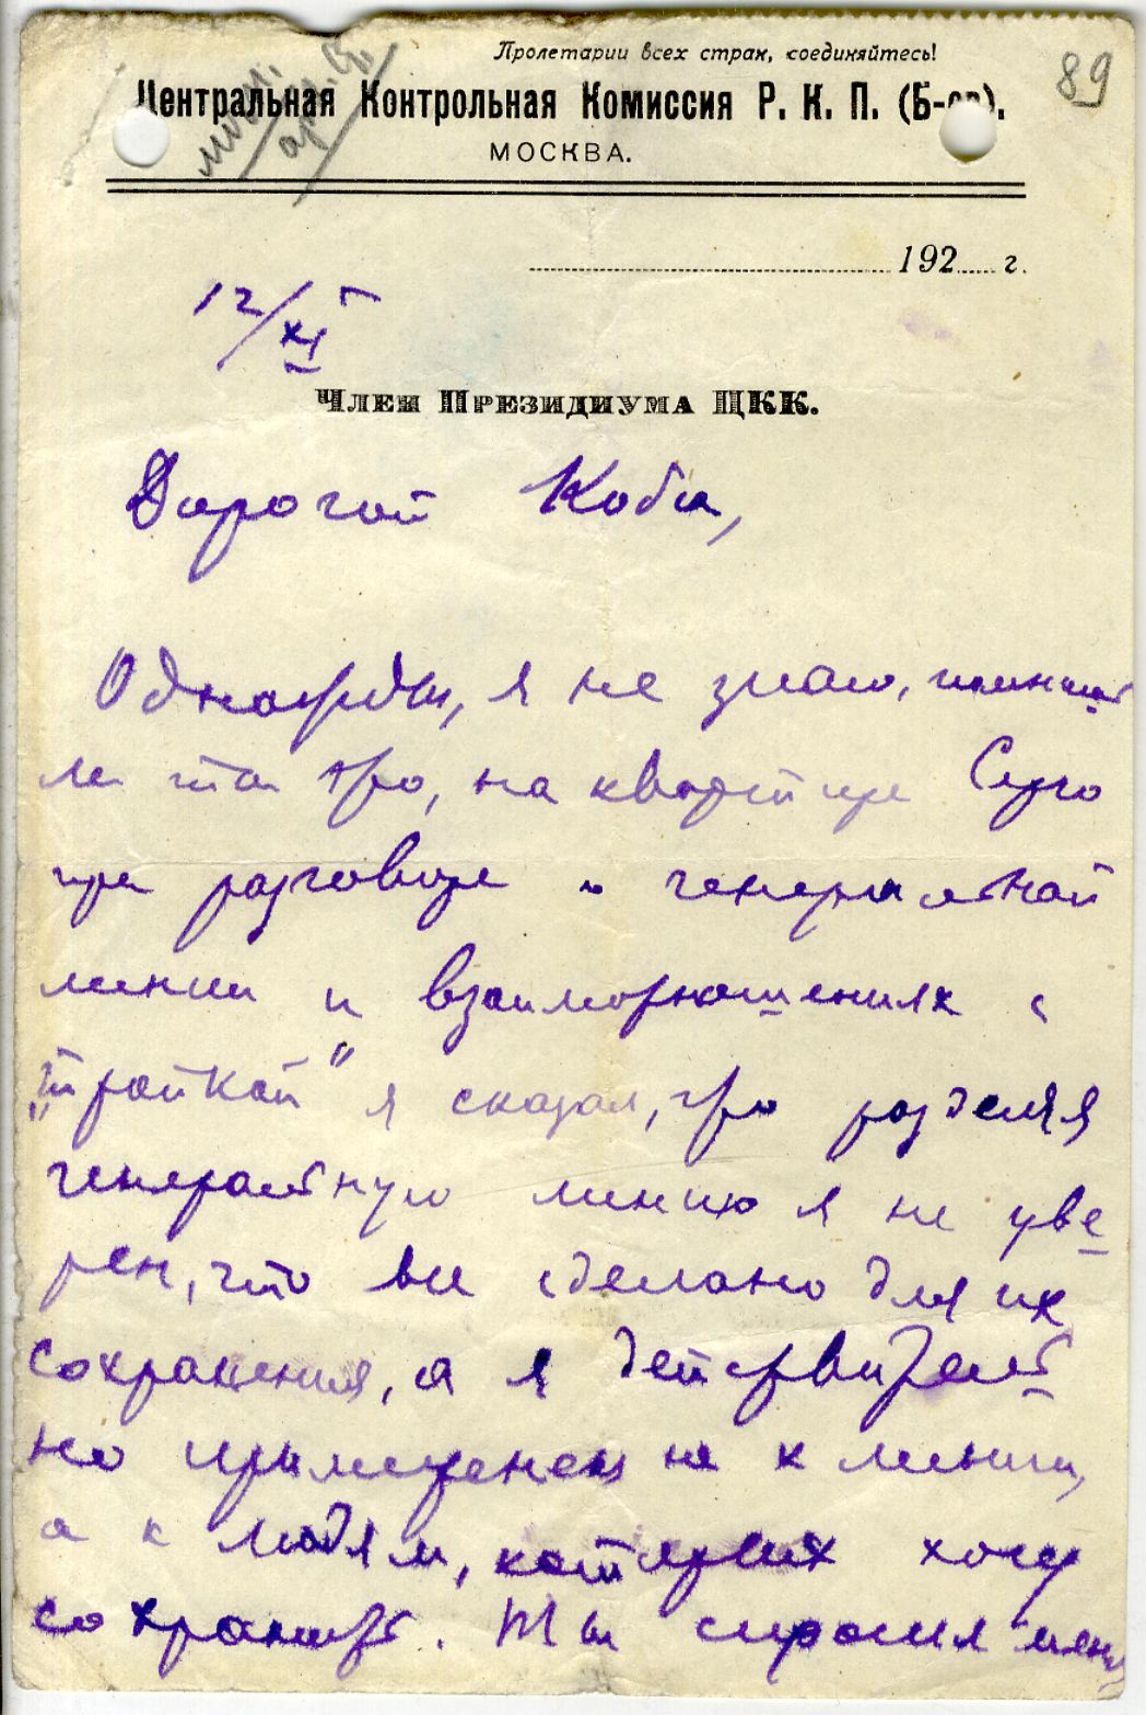 Пролетарии всех стран, соединяйтесь!
89
Центральная Контрольная Комиссия Р. К. П. (Б-ов).
МОСКВА.
192 г.
12/XI
Член Президиума ЦКК.
Дорогой Коба,
Однажды, я не знаю, помнишь
ли ты это, на квартире Серго
при разговоре о генеральной
линии и взаимоотношениях с
„тройкой" я сказал, что разделяя
генеральную линию я не уве
рен, что все сделано для их
сохранения, а я действитель
но примиренец не к линии,
а к людям, которых хочу
сохранить. Ты спросил меня